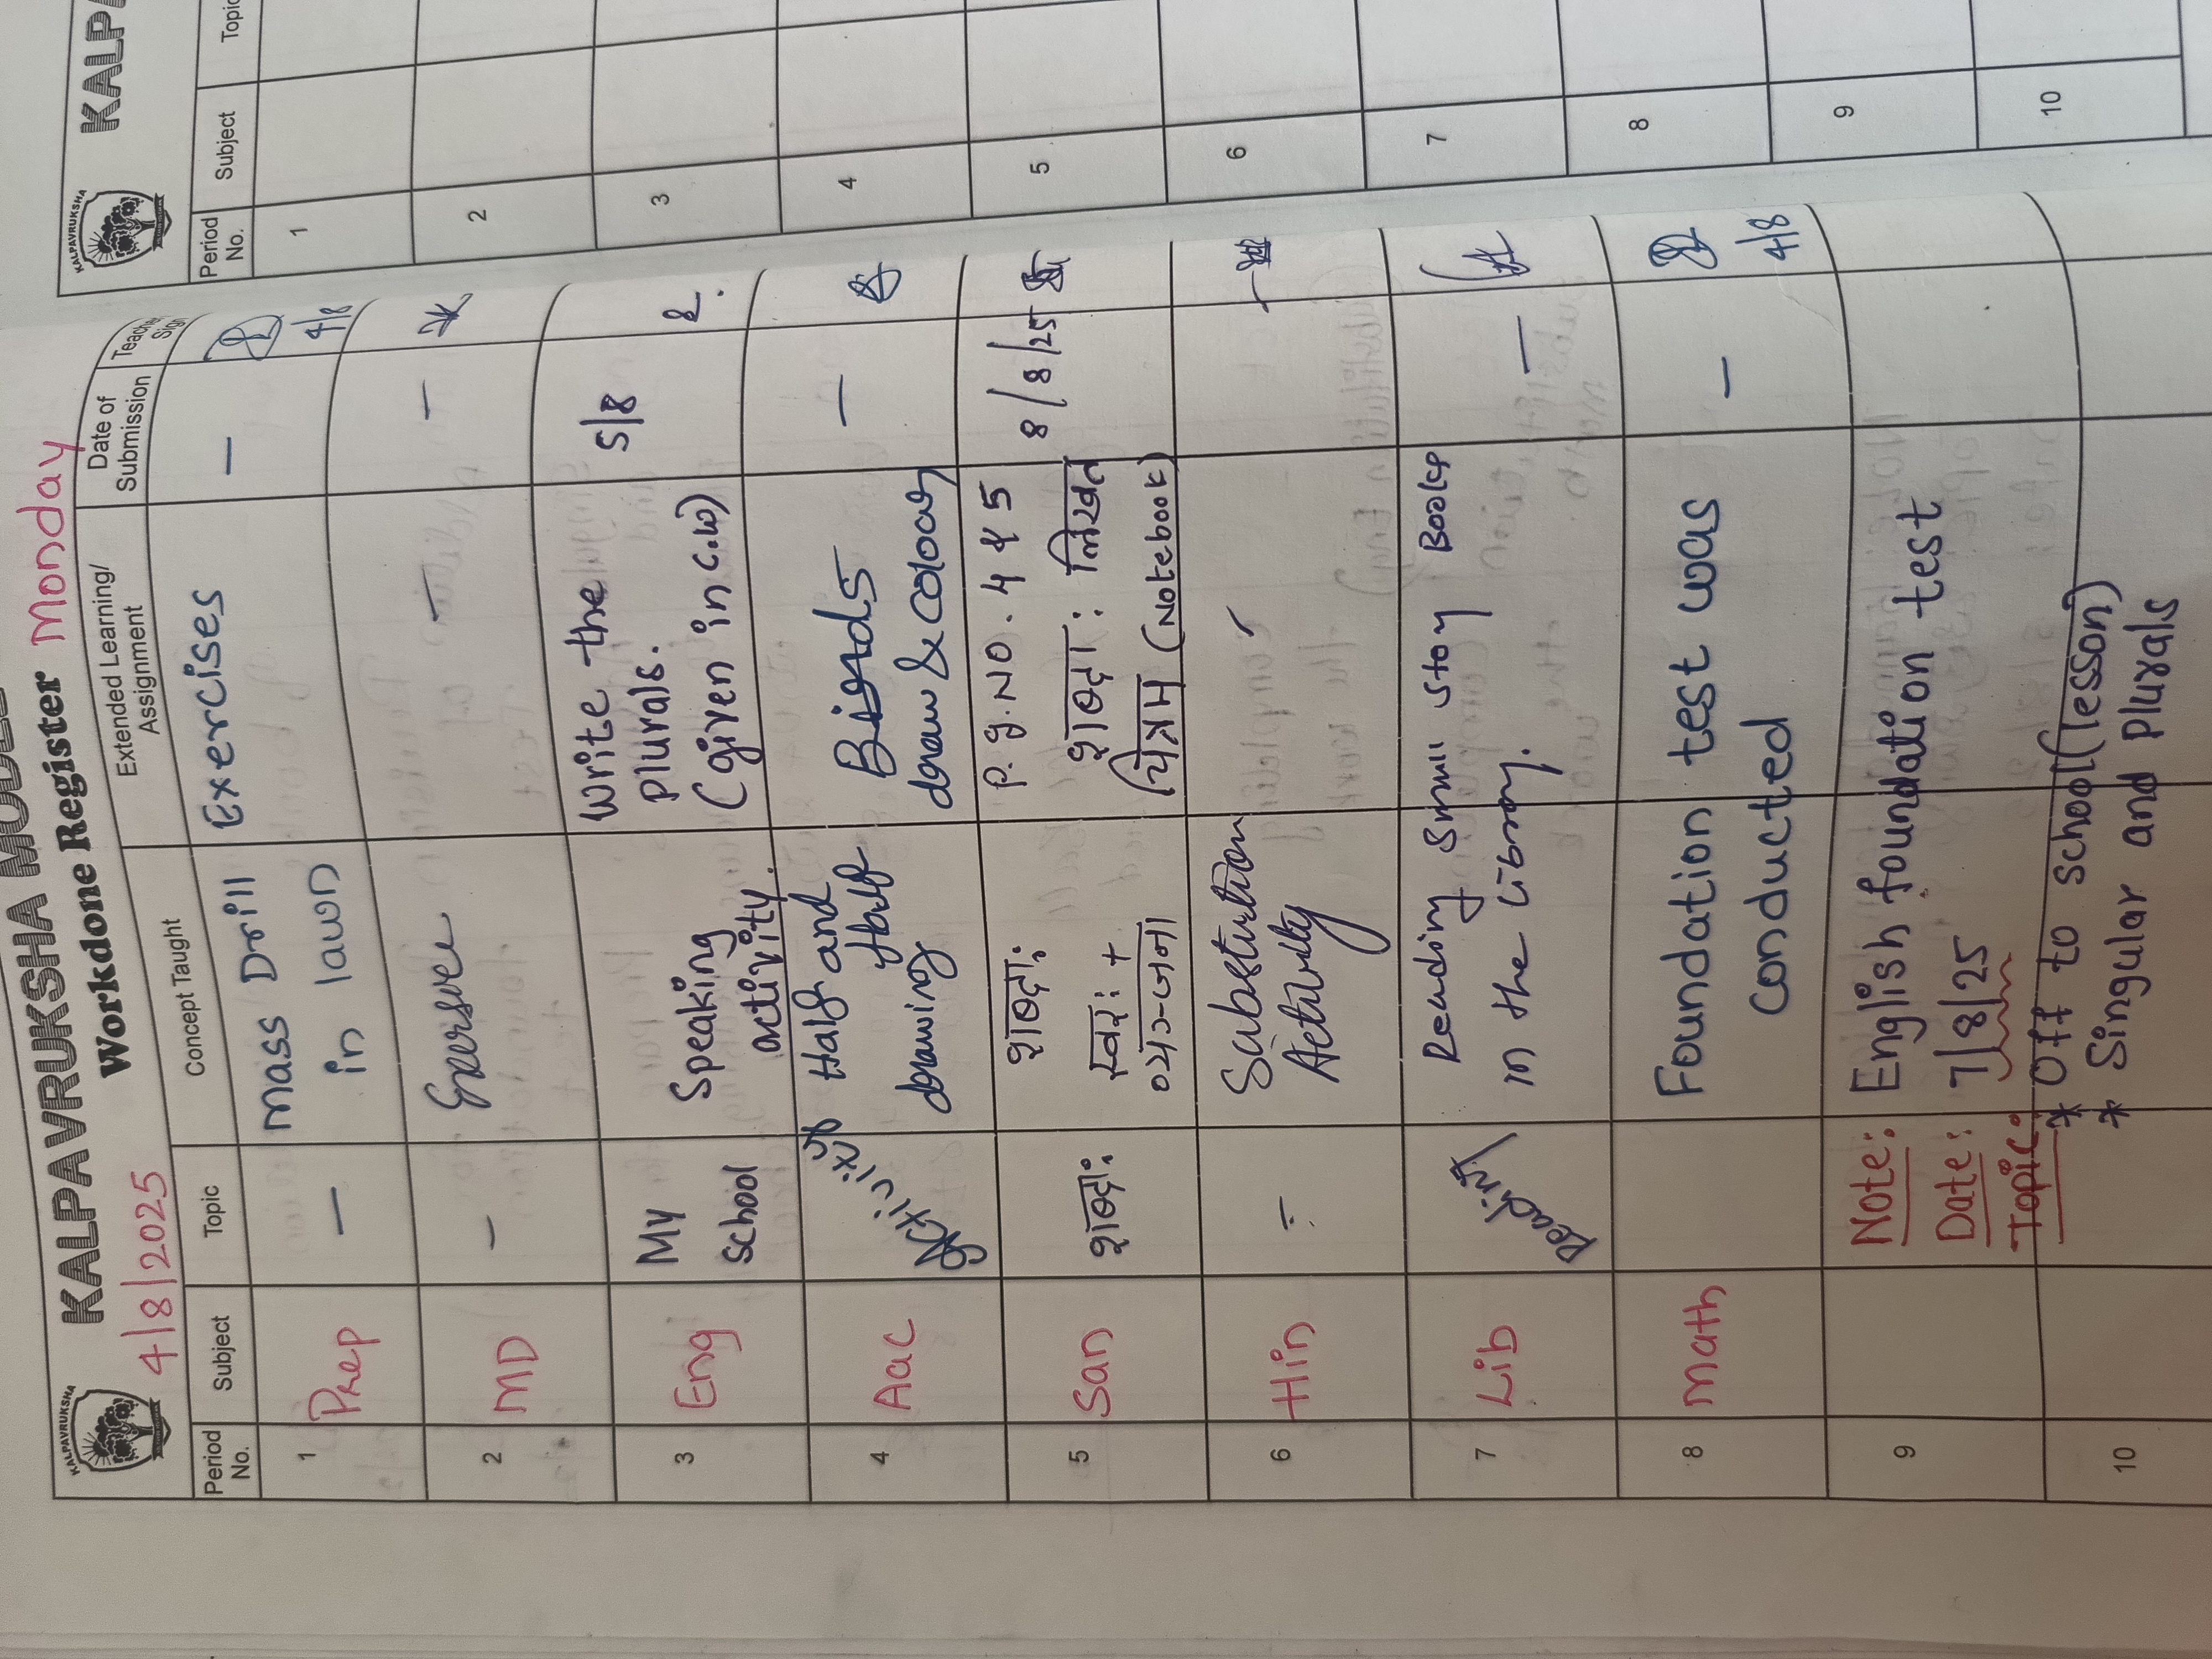 KALPAVRUKSHA MODEL
Workdone Register Monday
KALPAVRUKSHA
4/8/2025
Period No. Subject Topic Concept Taught Extended Learning/ Assignment Date of Submission Teacher Sign
1 Prep — Mass Drill in lawn Exercises — 4/8
2 MD — — —
3 Eng My school Speaking activity. Write the plurals. (given in c.w) 5/8
4 Aac Half and Half drawing Birds draw & colour —
5 San शब्दाः शब्दाः स्वरः + P.g.NO. 4 & 5 शब्दाः लिखत (चित्रम् (Notebook) 8/8/25
6 Hin Substitution Activity
7 Lib Reading Reading Small story Books in the Library. —
8 Math Foundation test was conducted — 4/8
9 Note: English foundation test
Date: 7/8/25
Topic: * Off to school (lesson)
10 * Singular and plurals
KALPAVRUKSHA
KALP
Period No. Subject Topic
1
2
3
4
5
6
7
8
9
10